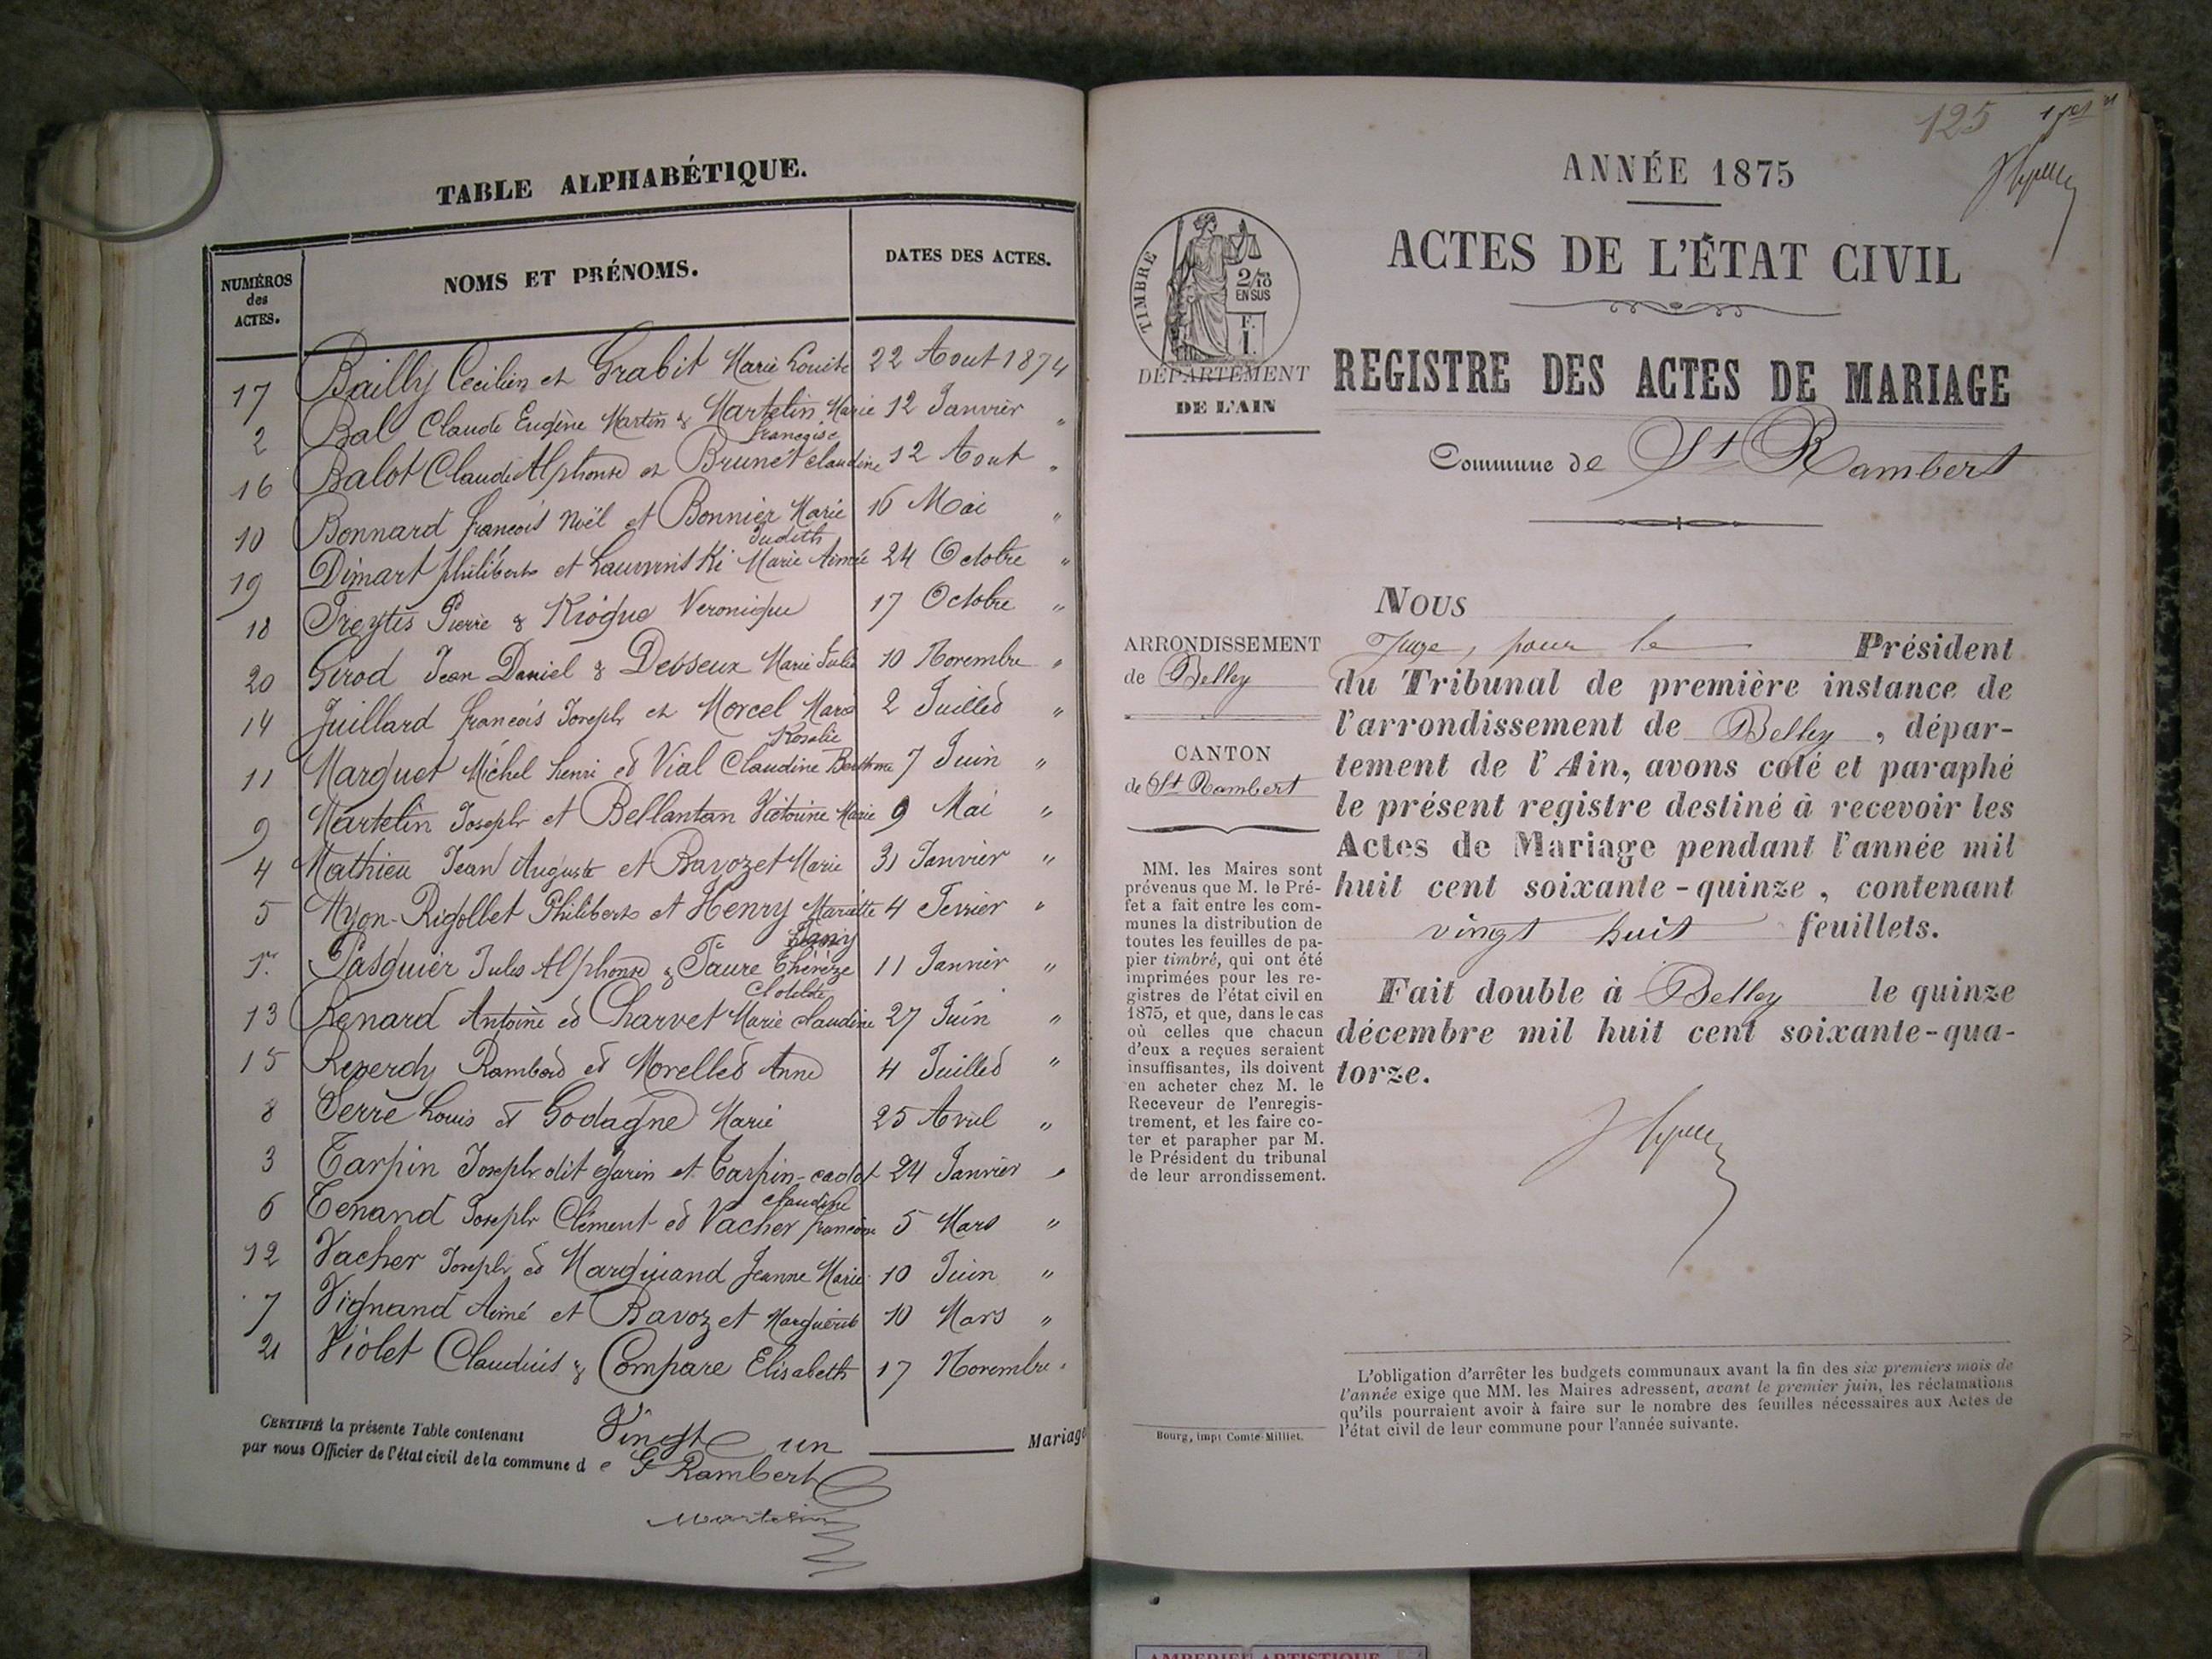 TABLE ALPHABÉTIQUE.
NUMÉROS
des
ACTES.
NOMS ET PRÉNOMS.
DATES DES ACTES.
17 Bailly Cecilien et Grabit Marie Louise 22 Aout 1874
2 Bal Claude Eugène Martin & Martelin Marie françoise 12 Janvier "
16 Balot Claude Alphonse et Brunet claudine 12 Aout "
10 Bonnard francois Noël et Bonnier Marie Judith 16 Mai "
19 Dimart philibert et Marie Aimée 24 Octobre "
18 Pierre & Veronique 17 Octobre "
20 Girod Jean Daniel & Desseux Marie Julie 10 Novembre "
14 Juillard francois Joseph et Morcel Marie Rosalie 2 Juillet "
11 Marquet Michel henri et Vial Claudine 7 Juin "
9 Martelin Joseph et Bellantan Marie 9 Mai "
4 Mathieu Jean Auguste et Bavozet Marie 31 Janvier "
5 Myon-Rigollet Philibert et Henry Mariette 4 Fevrier "
1er Pasquier Jules Alphonse & Faure Thérèze Clotilde 11 Janvier "
13 Renard Antoine et Charvet Marie claudine 27 Juin "
15 Reverdy Rambert et Morellet Anne 4 Juillet "
8 Serre Louis et Godagne Marie 25 Avril "
3 Tarpin Joseph dit garin et Tarpin-cadot claudine 24 Janvier "
6 Tenand Joseph Clément et Vacher 5 Mars "
12 Vacher Joseph et Marquiand Jeanne Marie 10 Juin "
7 Vignand Aimé et Bavozet Marguerite 10 Mars "
21 Violet Claudius & Compare Elisabeth 17 Novembre "
CERTIFIÉ la présente Table contenant Vingt un Mariage
par nous Officier de l'état civil de la commune de St Rambert
Martelin
125
ANNÉE 1875
ACTES DE L'ÉTAT CIVIL
TIMBRE
2/10
EN SUS
F.
1.
DÉPARTEMENT
DE L'AIN
REGISTRE DES ACTES DE MARIAGE
Commune de St Rambert
ARRONDISSEMENT
de Belley
CANTON
de St Rambert
MM. les Maires sont
prévenus que M. le Pré-
fet a fait entre les com-
munes la distribution de
toutes les feuilles de pa-
pier timbré, qui ont été
imprimées pour les re-
gistres de l'état civil en
1875, et que, dans le cas
où celles que chacun
d'eux a reçues seraient
insuffisantes, ils doivent
en acheter chez M. le
Receveur de l'enregis-
trement, et les faire co-
ter et parapher par M.
le Président du tribunal
de leur arrondissement.
Bourg, impr Comte-Milliet.
NOUS
Juge, pour le Président
du Tribunal de première instance de
l'arrondissement de Belley, dépar-
tement de l'Ain, avons coté et paraphé
le présent registre destiné à recevoir les
Actes de Mariage pendant l'année mil
huit cent soixante-quinze, contenant
vingt huit feuillets.
Fait double à Belley le quinze
décembre mil huit cent soixante-qua-
torze.
L'obligation d'arrêter les budgets communaux avant la fin des six premiers mois de
l'année exige que MM. les Maires adressent, avant le premier juin, les réclamations
qu'ils pourraient avoir à faire sur le nombre des feuilles nécessaires aux Actes de
l'état civil de leur commune pour l'année suivante.